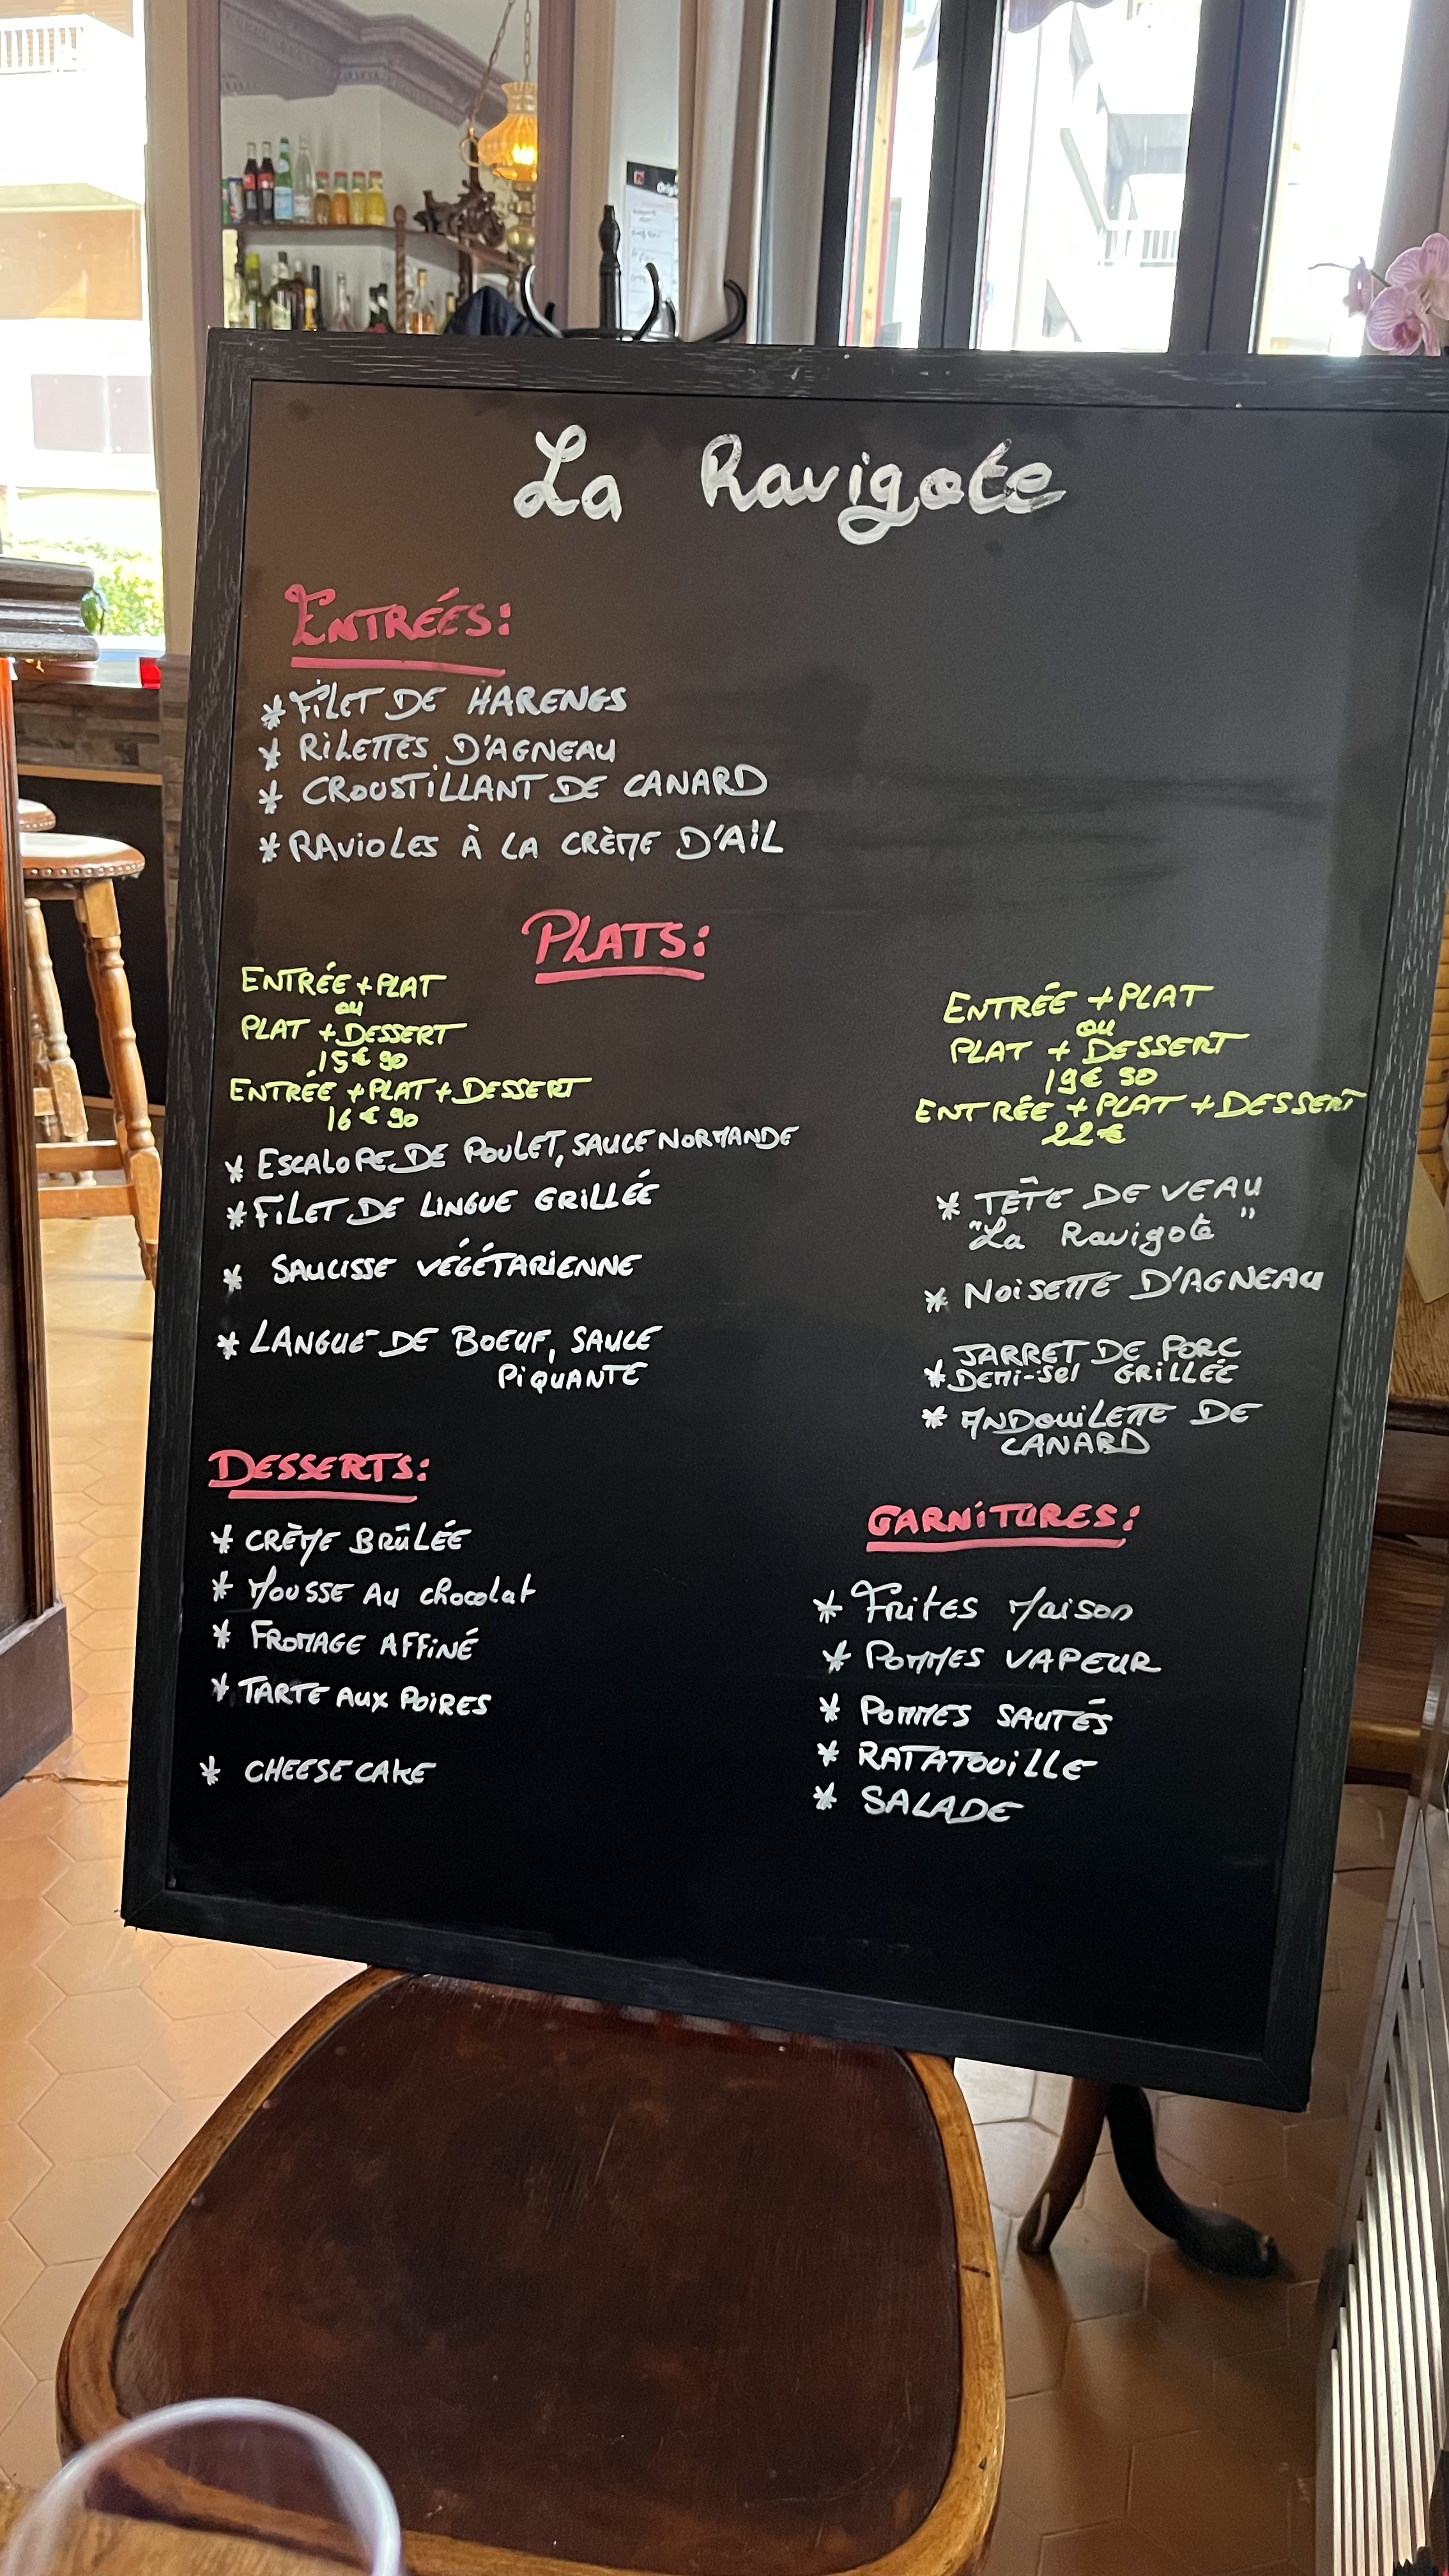 La Ravigote
ENTRÉES:
* FILET DE HARENGS
* RILETTES D'AGNEAU
* CROUSTILLANT DE CANARD
* RAVIOLES À LA CRÈME D'AIL
PLATS:
ENTRÉE + PLAT
ou
PLAT + DESSERT
15€90
ENTRÉE + PLAT + DESSERT
16€90
* ESCALOPE DE POULET, SAUCE NORMANDE
* FILET DE LINGUE GRILLÉE
* SAUCISSE VÉGÉTARIENNE
* LANGUE DE BOEUF, SAUCE
PIQUANTE
ENTRÉE + PLAT
ou
PLAT + DESSERT
19€50
ENTRÉE + PLAT + DESSERT
22€
* TÊTE DE VEAU
"La Ravigote"
* NOISETTE D'AGNEAU
JARRET DE PORC
* DEMI-SEL GRILLÉE
* ANDOUILETTE DE
CANARD
DESSERTS:
* CRÈME BRÛLÉE
* MOUSSE AU chocolat
* FROMAGE AFFINÉ
* TARTE AUX POIRES
* CHEESE CAKE
GARNITURES:
* Frites Maison
* POMMES VAPEUR
* POMMES SAUTÉS
* RATATOUILLE
* SALADE